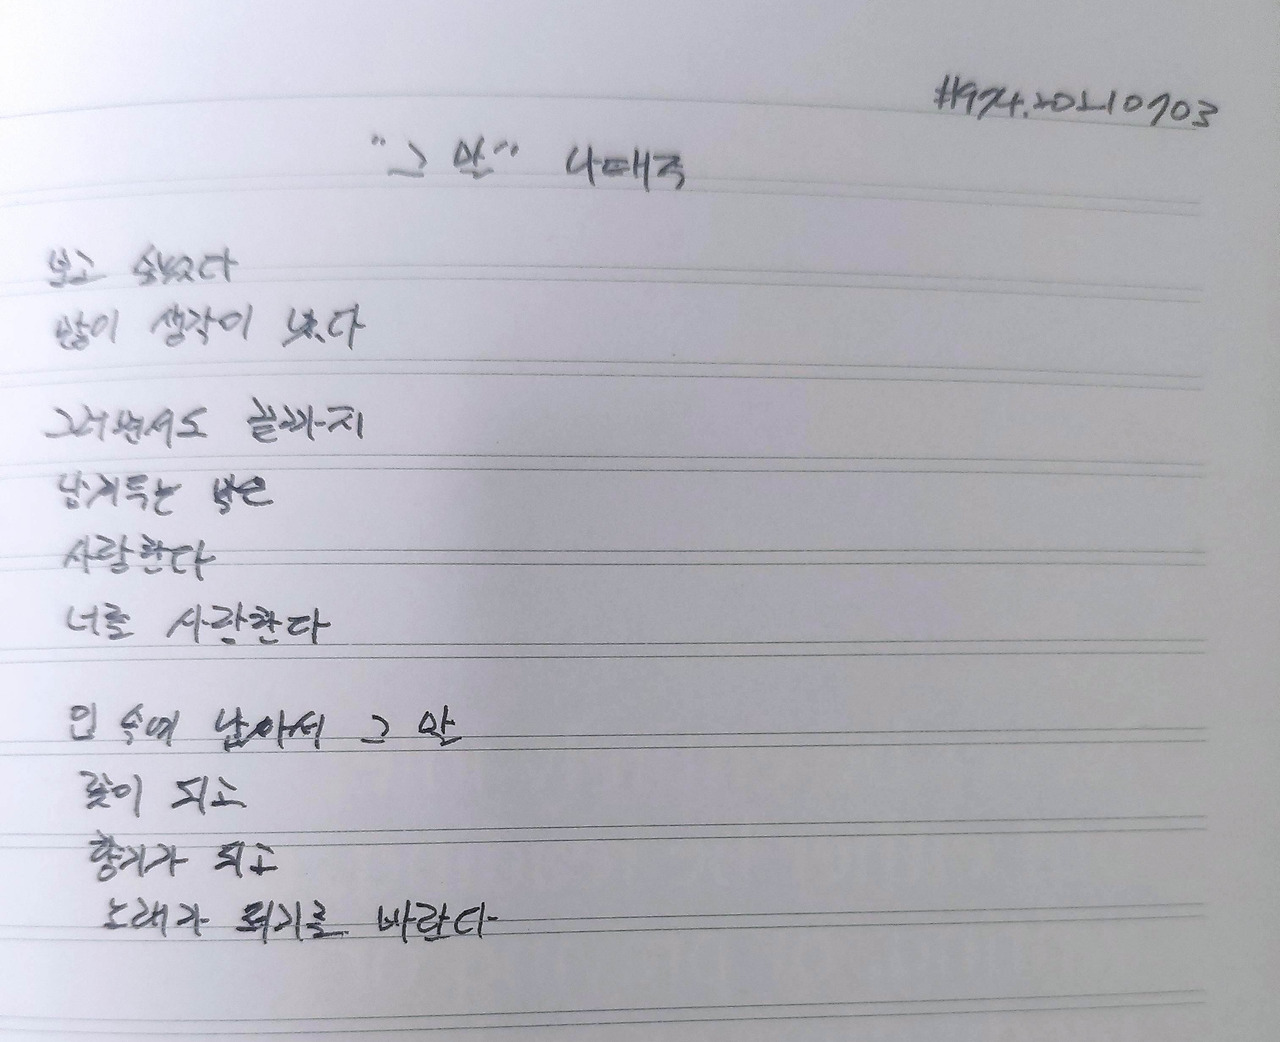 #974.20210703
"그 말" 나태주
보고 싶었다
많이 생각이 났다
그러면서도 끝까지
남겨두는 말은
사랑한다
너를 사랑한다
입 속에 남아서 그 말
꽃이 되고
향기가 되고
노래가 되기를 바란다